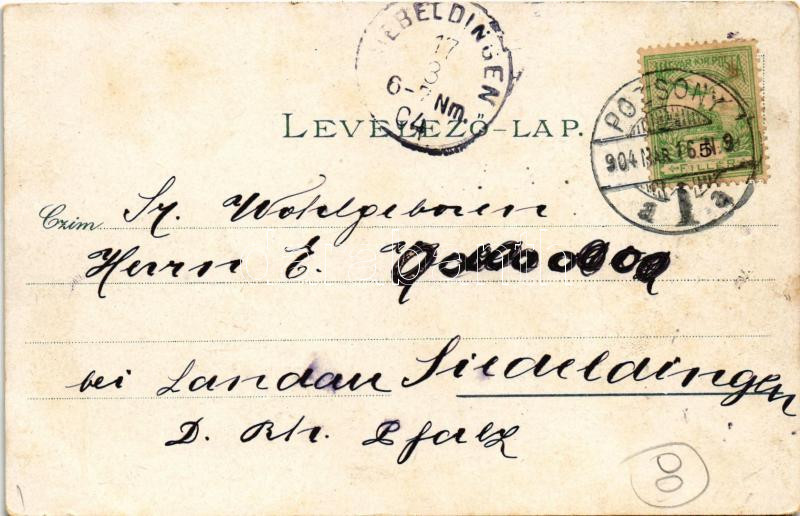 SIEBELDINGEN
17
3
6-7 Nm.
04
MAGYAR KIR. POSTA
5
FILLÉR
POZSONY 1
904 MAR 16 N 9
a 1 a
LEVELEZŐ-LAP.
Czim Sr. Wohlgeboren
Herrn E.
bei Landau Siebeldingen
D. Rh. Pfalz
00